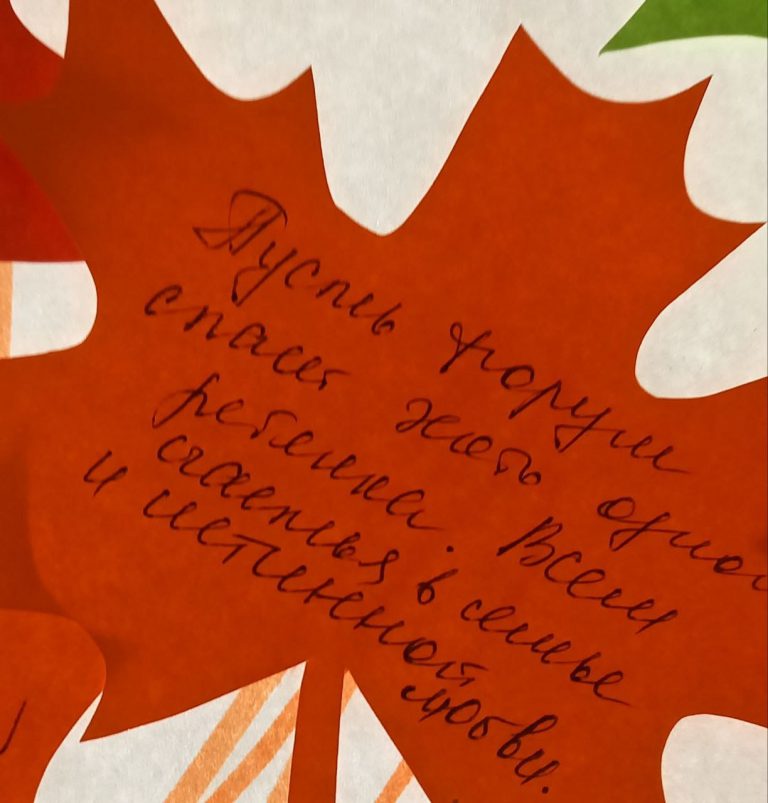 Пусть форум
спасёт хоть одного
ребенка. Всем
счастья в семье
и истинной любви.